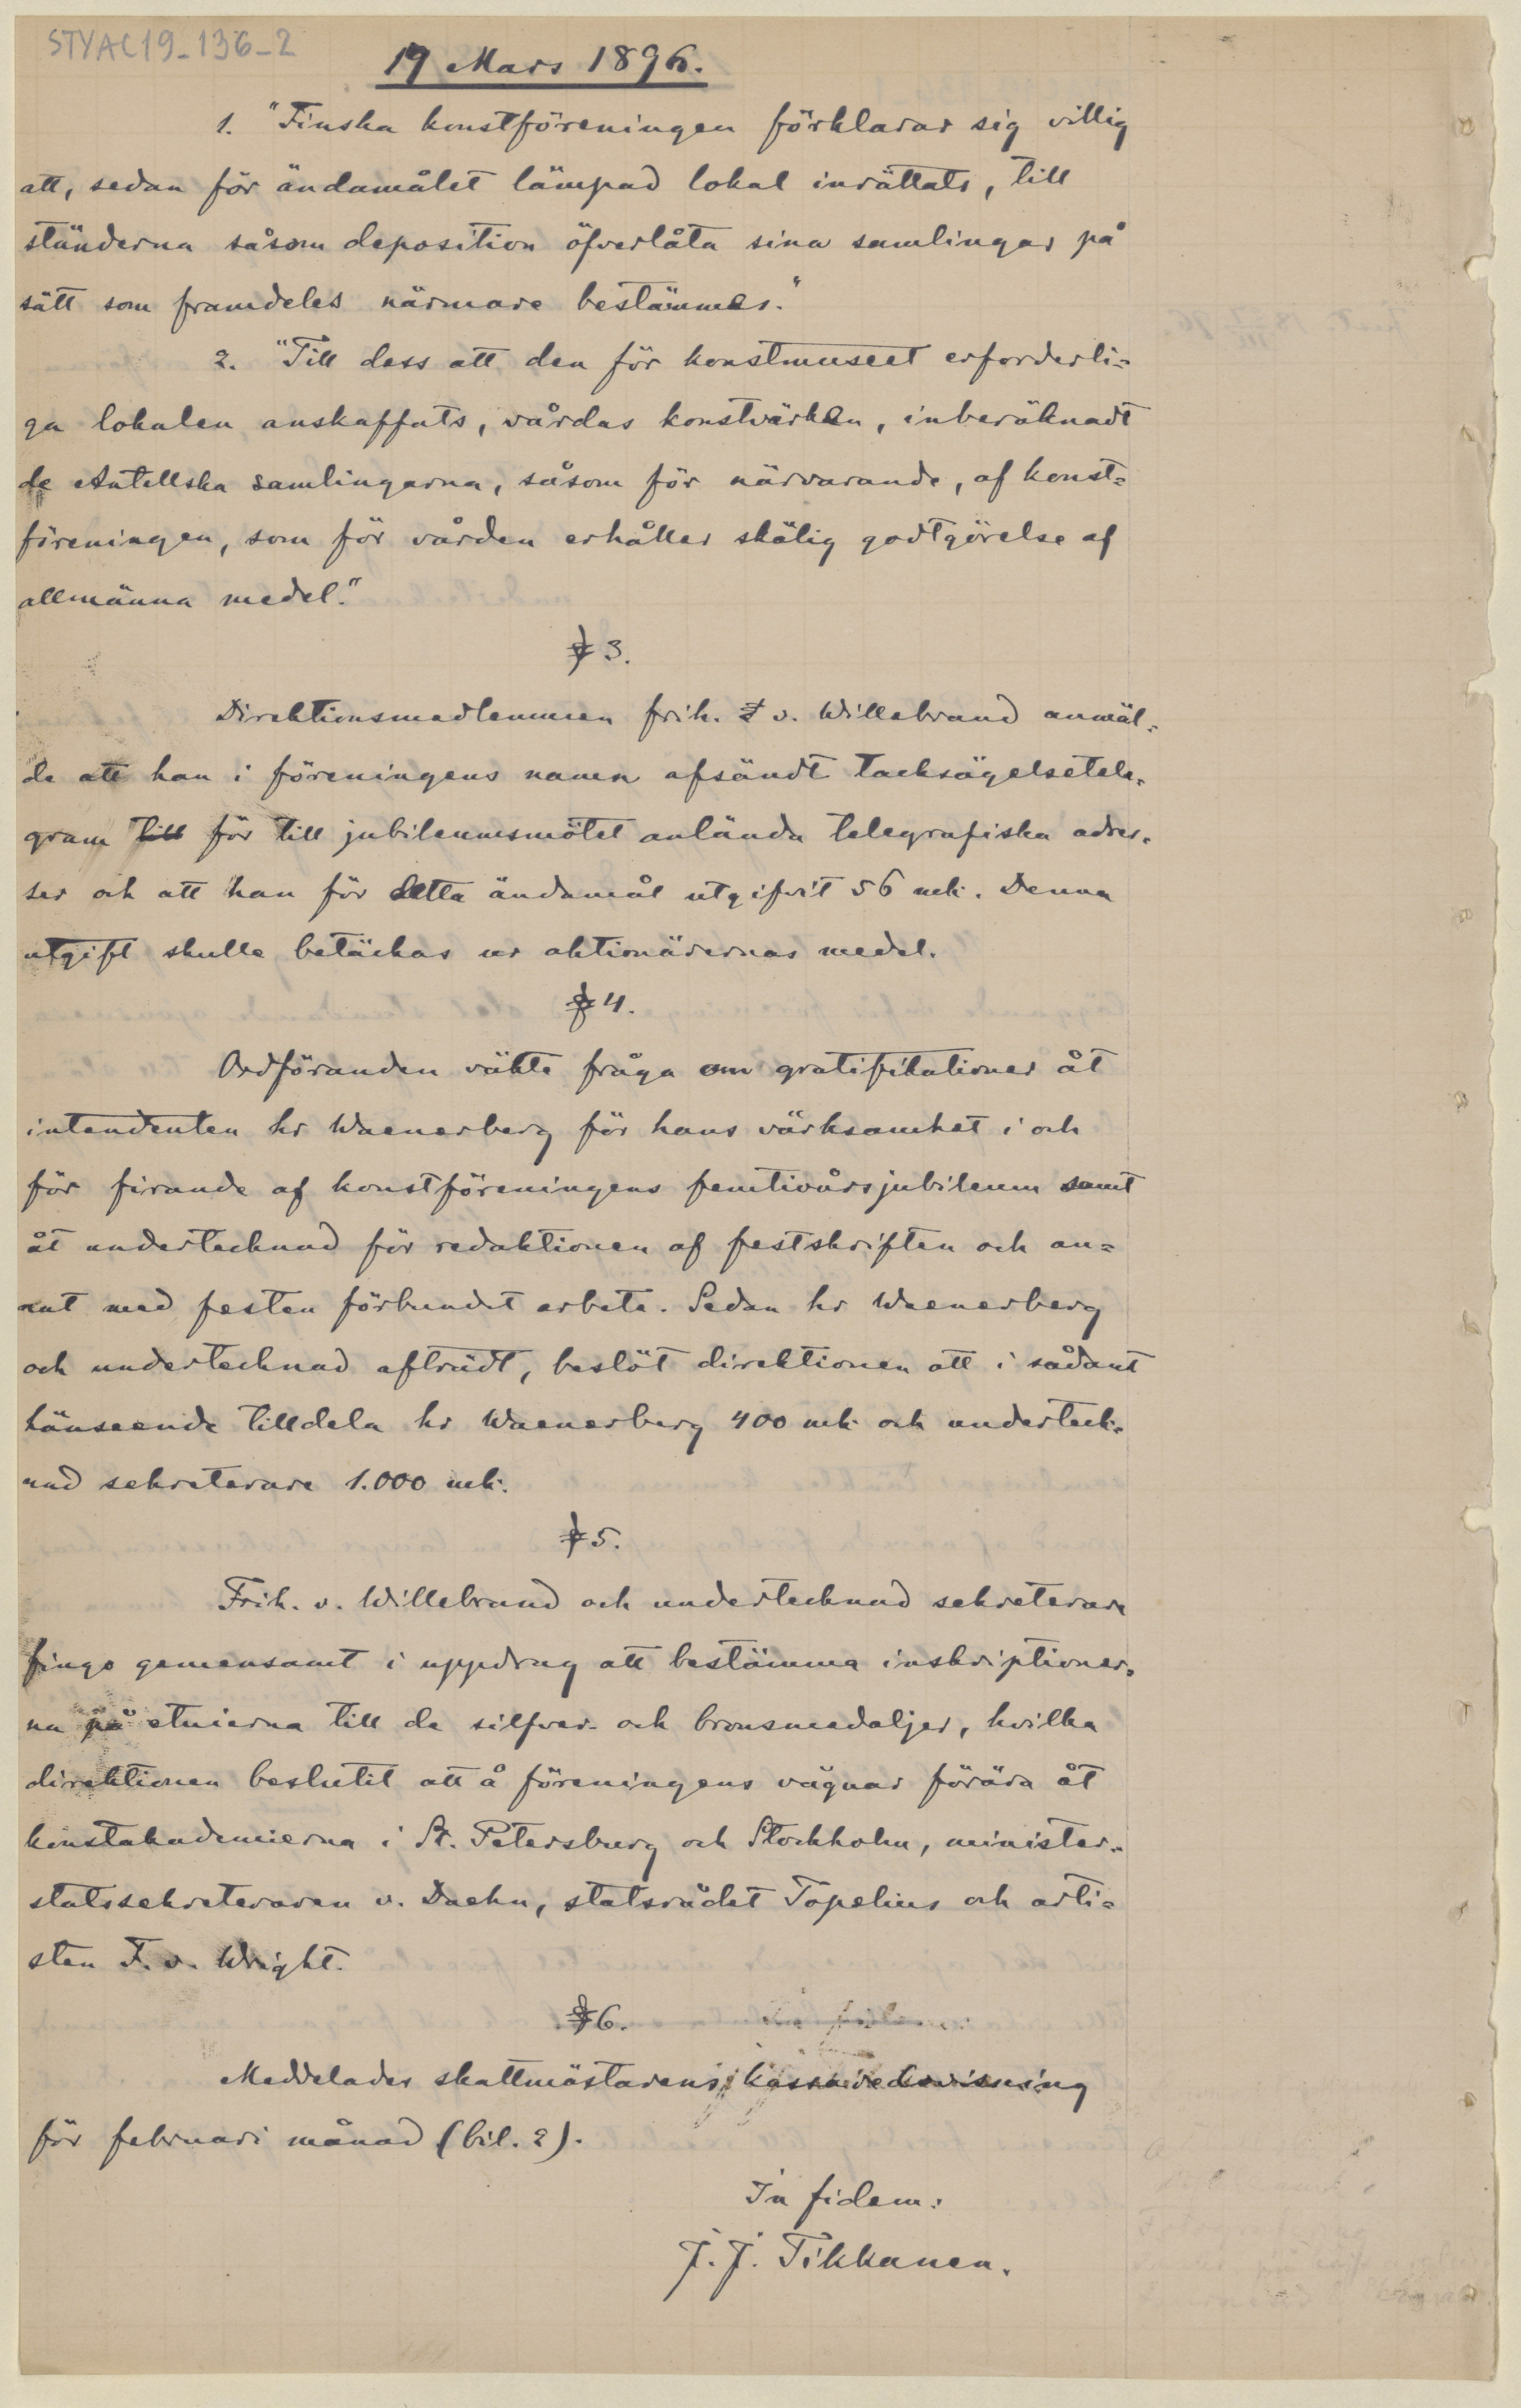 STYAC19_136_2
19 Mars 1896.
1. "Finska konstföreningen förklarar sig villig
att, sedan för ändamålet lämpad lokal inrättats, till
ständerna såsom deposition öfverlåta sina samlingar på
sätt som framdeles närmare bestämmes."
2. "Till dess att den för konstmuseet erforderli=
ga lokalen anskaffats, vårdas konstvärken, inberäknadt
de Antellska samlingarna, såsom för närvarande, af konst=
föreningen, som för vården erhåller skälig godtgörelse af
allmänna medel."
§ 3.
Direktionsmedlemmen frih. v. Willebrand anmäl=
de att han i föreningens namn afsändt tacksägelsetele=
gram till för till jubileumsmötet anlända telegrafiska adres=
ser och att han för detta ändamål utgifvit 56 mk. Denna
utgift skulle betäckas ur aktionärernas medel.
§ 4.
Ordföranden väkte fråga om gratifikationer åt
intendenten hr Waenerberg för hans värksamhet i och
för firande af konstföreningens femtioårsjubileum samt
åt undertecknad för redaktionen af festskriften och an=
nat med festen förbundet arbete. Sedan hr Waenerberg
och undertecknad afträdt, beslöt direktionen att i sådant
hänseende tilldela hr Waenerberg 400 mk och underteck=
nad sekreterare 1.000 mk.
§ 5.
Frih. v. Willebrand och undertecknad sekreterare
fingo gemensamt i uppdrag att bestämma inskriptioner=
na på etuierna till de silfver- och bronsmedaljer, hvilka
direktionen beslutit att å föreningens vägnar förära åt
konstakademierna i St. Petersburg och Stockholm, minister=
statssekreteraren v. Daehn, statsrådet Topelius och arti=
sten F. v. Wright.
§ 6.
Meddelades skattmästarens kassaredovisning
för februari månad (bil. 2).
In fidem:
J. J. Tikkanen.